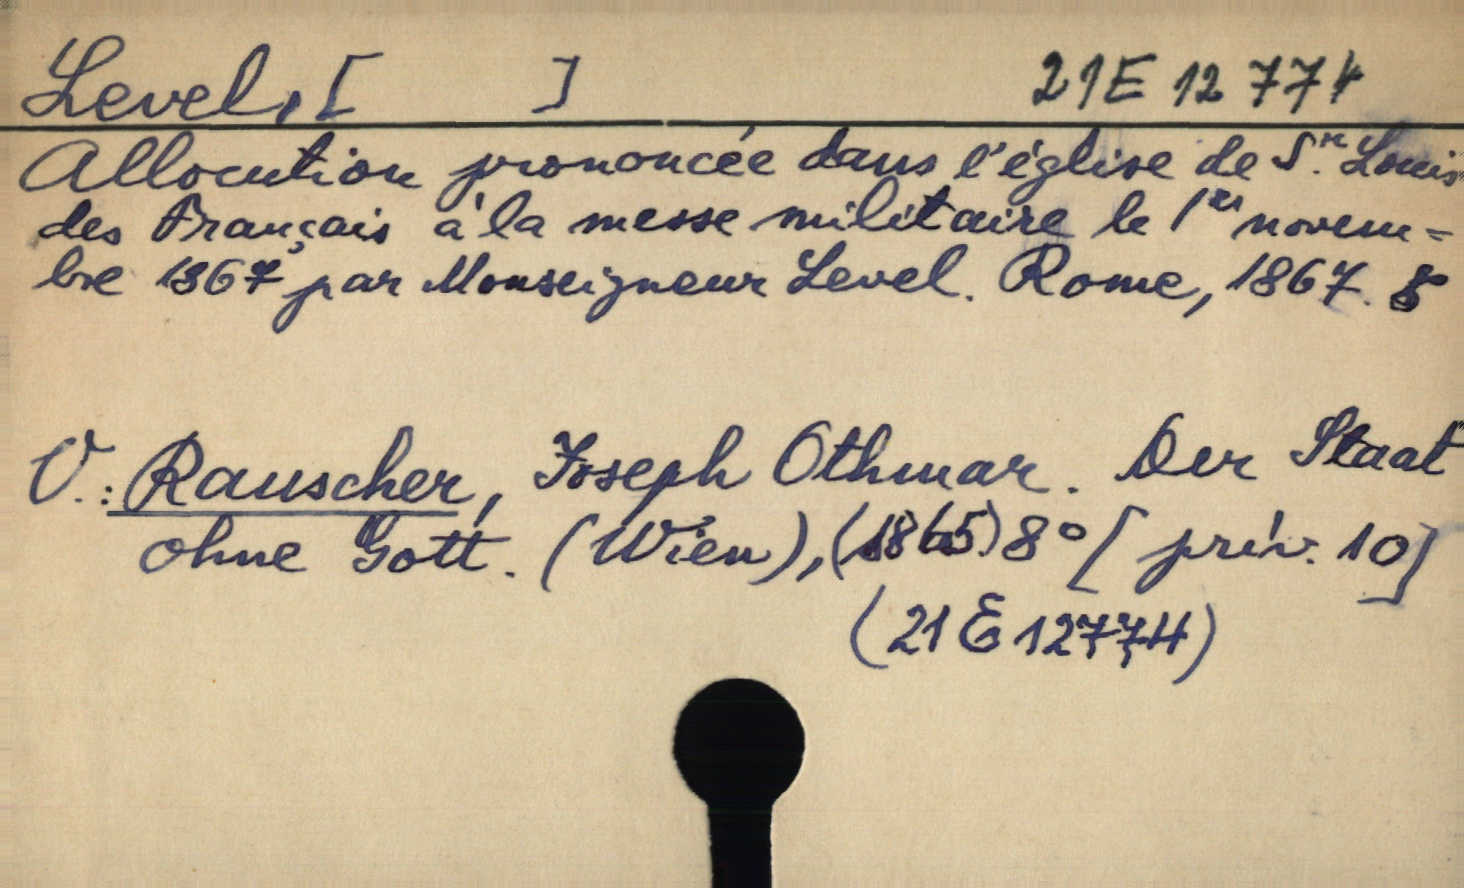 Level, [ ]
21E 12 774
Allocution prononcée dans l'église de St. Louis
des Français à la messe militaire le 1er novem-
bre 1867 par Monseigneur Level. Rome, 1867. 8°
V.: Rauscher, Joseph Othmar. Der Staat
ohne Gott. (Wien), (1865) 8° [priv. 10]
(21 E 12774)